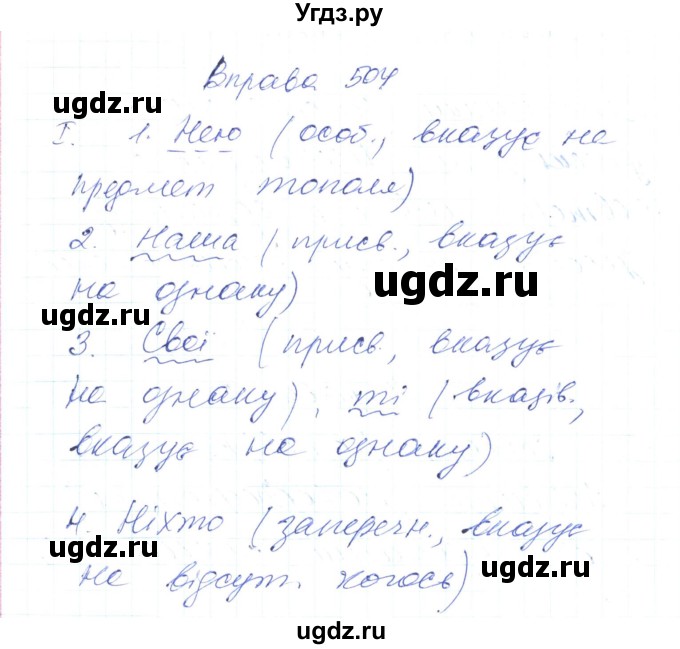 Угдз.ру
Вправа 504
I. 1. Нею (особ., вказує на
предмет тополя)
2. Наша (присв., вказує
на ознаку)
3. Свої (присв., вказує
на ознаку), ті (вказів.,
вказує на ознаку)
4. Ніхто (заперечн., вказує
на відсут. когось)
ugdz.ru
ugdz.ru
ugdz.ru
ugdz.ru
ugdz.ru
ugdz.ru
ugdz.ru